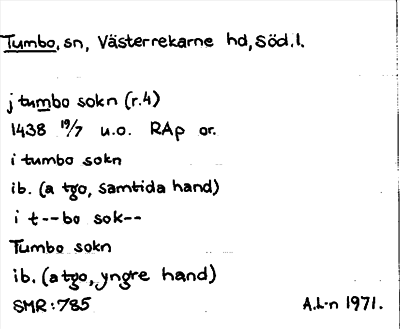 Tumbo, sn, Västerrekarne hd, Söd. l.
j tumbo sokn (r.4)
1438 19/7 u.o. RAp or.
i tumbo sokn
ib. (a tgo, samtida hand)
i t--bo sok--
Tumbo sokn
ib. (a tgo, yngre hand)
SMR:785 A.L-n 1971.